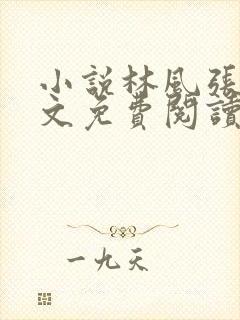 小説林風張
文免費閱讀
一九天